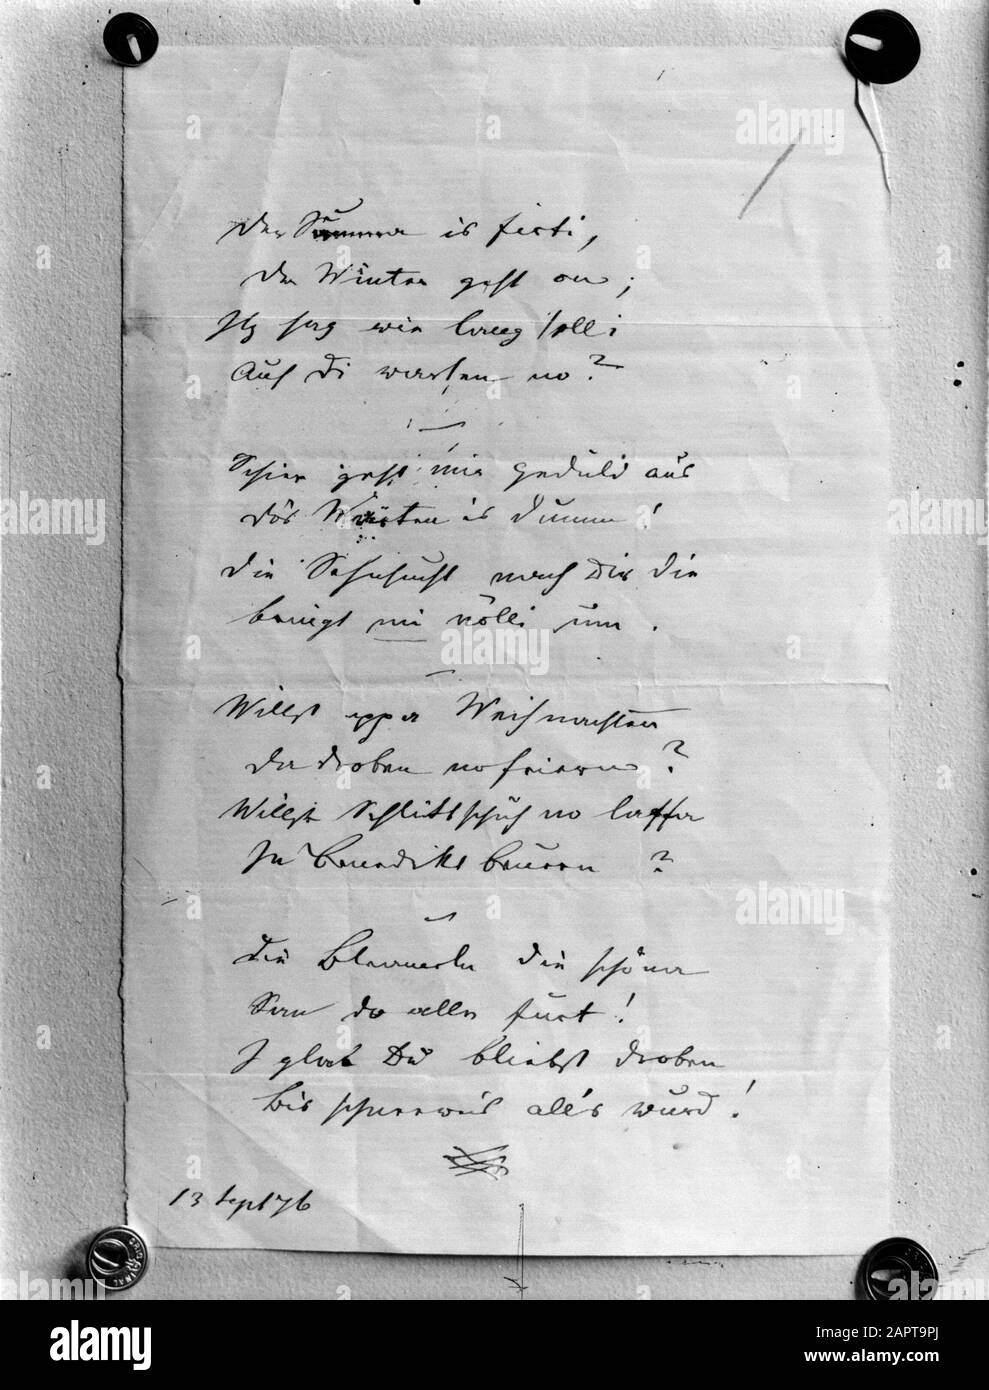 Der Summa is firti,
Der Winter geht on;
Itz sag wie lang soll i
Auf Di warten no?
Schier geht mir geduld aus
Dös Warten is dumm!
Die Sehnsucht nach Dir die
bringt mi völli um.
Willst eppa Weihnachten
da droben no feiern?
Willst Schlittschuh no laffa
In Benediktbeuern?
Die Bleameln die schöna
San do alle furt!
I glab Du bliebst droben
bis schneeweiß all's wurd!
13 Sept 76
alamy
Image ID: 2APT9PJ
www.alamy.com